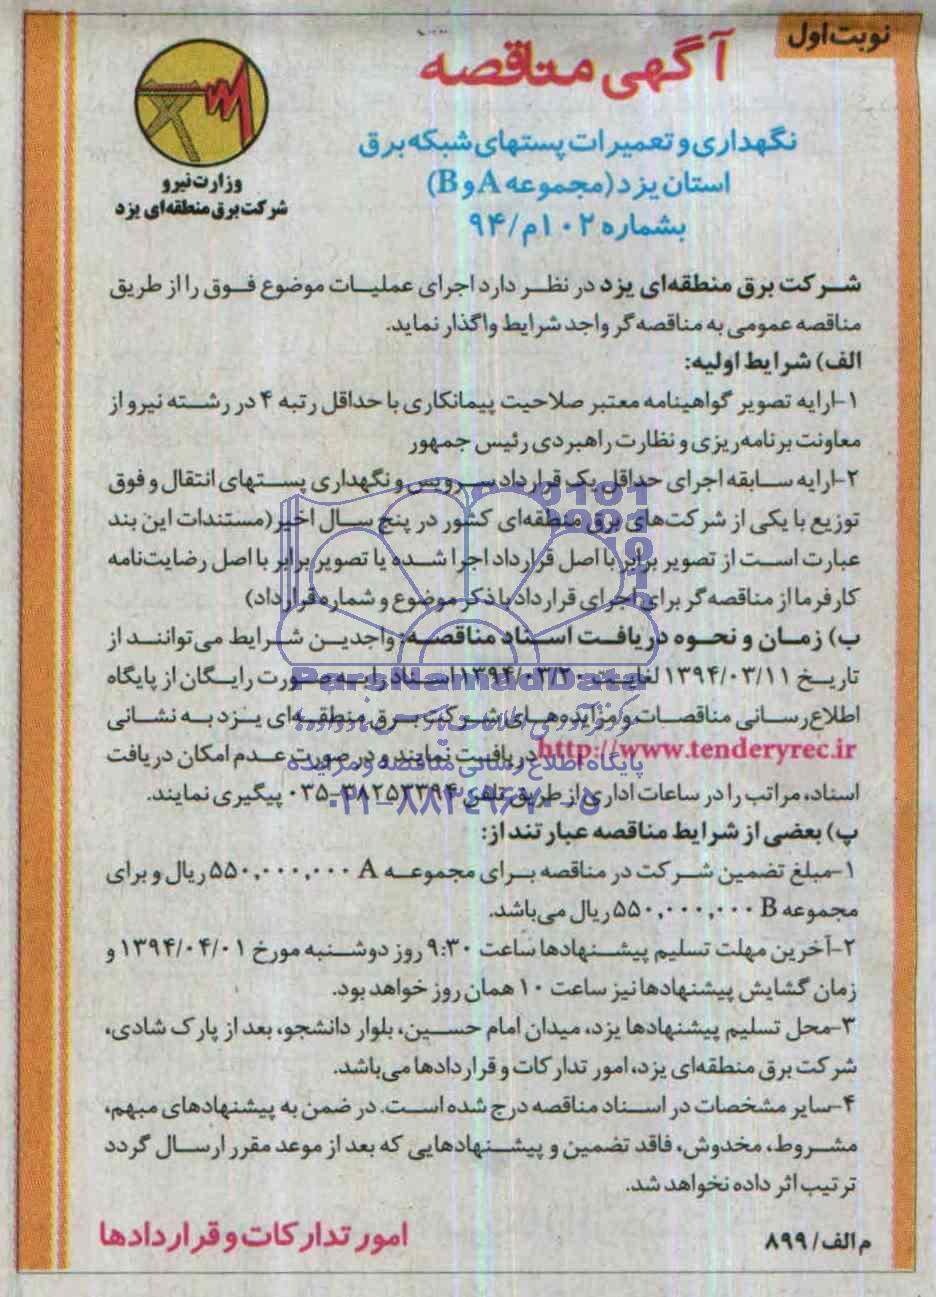 نوبت اول
آگهی مناقصه
نگهداری و تعمیرات پستهای شبکه برق
استان یزد (مجموعه A و B)
بشماره ۱۰۲م/۹۴
وزارت نیرو
شرکت برق منطقه‌ای یزد
شرکت برق منطقه‌ای یزد در نظر دارد اجرای عملیات موضوع فوق را از طریق
مناقصه عمومی به مناقصه‌گر واجد شرایط واگذار نماید.
الف) شرایط اولیه:
۱-ارایه تصویر گواهینامه معتبر صلاحیت پیمانکاری با حداقل رتبه ۴ در رشته نیرو از
معاونت برنامه‌ریزی و نظارت راهبردی رئیس جمهور
۲-ارایه سابقه اجرای حداقل یک قرارداد سرویس و نگهداری پستهای انتقال و فوق
توزیع با یکی از شرکت‌های برق منطقه‌ای کشور در پنج سال اخیر (مستندات این بند
عبارت است از تصویر برابر با اصل قرارداد اجرا شده یا تصویر برابر با اصل رضایت‌نامه
کارفرما از مناقصه‌گر برای اجرای قرارداد با ذکر موضوع و شماره قرارداد)
ب) زمان و نحوه دریافت اسناد مناقصه: واجدین شرایط می‌توانند از
تاریخ ۱۳۹۴/۰۳/۱۱ لغایت ۱۳۹۴/۰۳/۲۰ اسناد را به صورت رایگان از پایگاه
اطلاع‌رسانی مناقصات و مزایده‌های شرکت برق منطقه‌ای یزد به نشانی
http://www.tenderyrec.ir دریافت نمایند و در صورت عدم امکان دریافت
اسناد، مراتب را در ساعات اداری از طریق تلفن ۳۸۲۵۳۳۹۴-۰۳۵ پیگیری نمایند.
پ) بعضی از شرایط مناقصه عبارتند از:
۱-مبلغ تضمین شرکت در مناقصه برای مجموعه A ۵۵۰,۰۰۰,۰۰۰ ریال و برای
مجموعه B ۵۵۰,۰۰۰,۰۰۰ ریال می‌باشد.
۲-آخرین مهلت تسلیم پیشنهادها ساعت ۹:۳۰ روز دوشنبه مورخ ۱۳۹۴/۰۴/۰۱ و
زمان گشایش پیشنهادها نیز ساعت ۱۰ همان روز خواهد بود.
۳-محل تسلیم پیشنهادها یزد، میدان امام حسین، بلوار دانشجو، بعد از پارک شادی،
شرکت برق منطقه‌ای یزد، امور تدارکات و قراردادها می‌باشد.
۴-سایر مشخصات در اسناد مناقصه درج شده است. در ضمن به پیشنهادهای مبهم،
مشروط، مخدوش، فاقد تضمین و پیشنهادهایی که بعد از موعد مقرر ارسال گردد
ترتیب اثر داده نخواهد شد.
م الف/۸۹۹
امور تدارکات و قراردادها
ParsNamadData
پایگاه اطلاع رسانی مناقصه و مزایده
۰۲۱-۸۸۳۴۹۶۷۰-۵